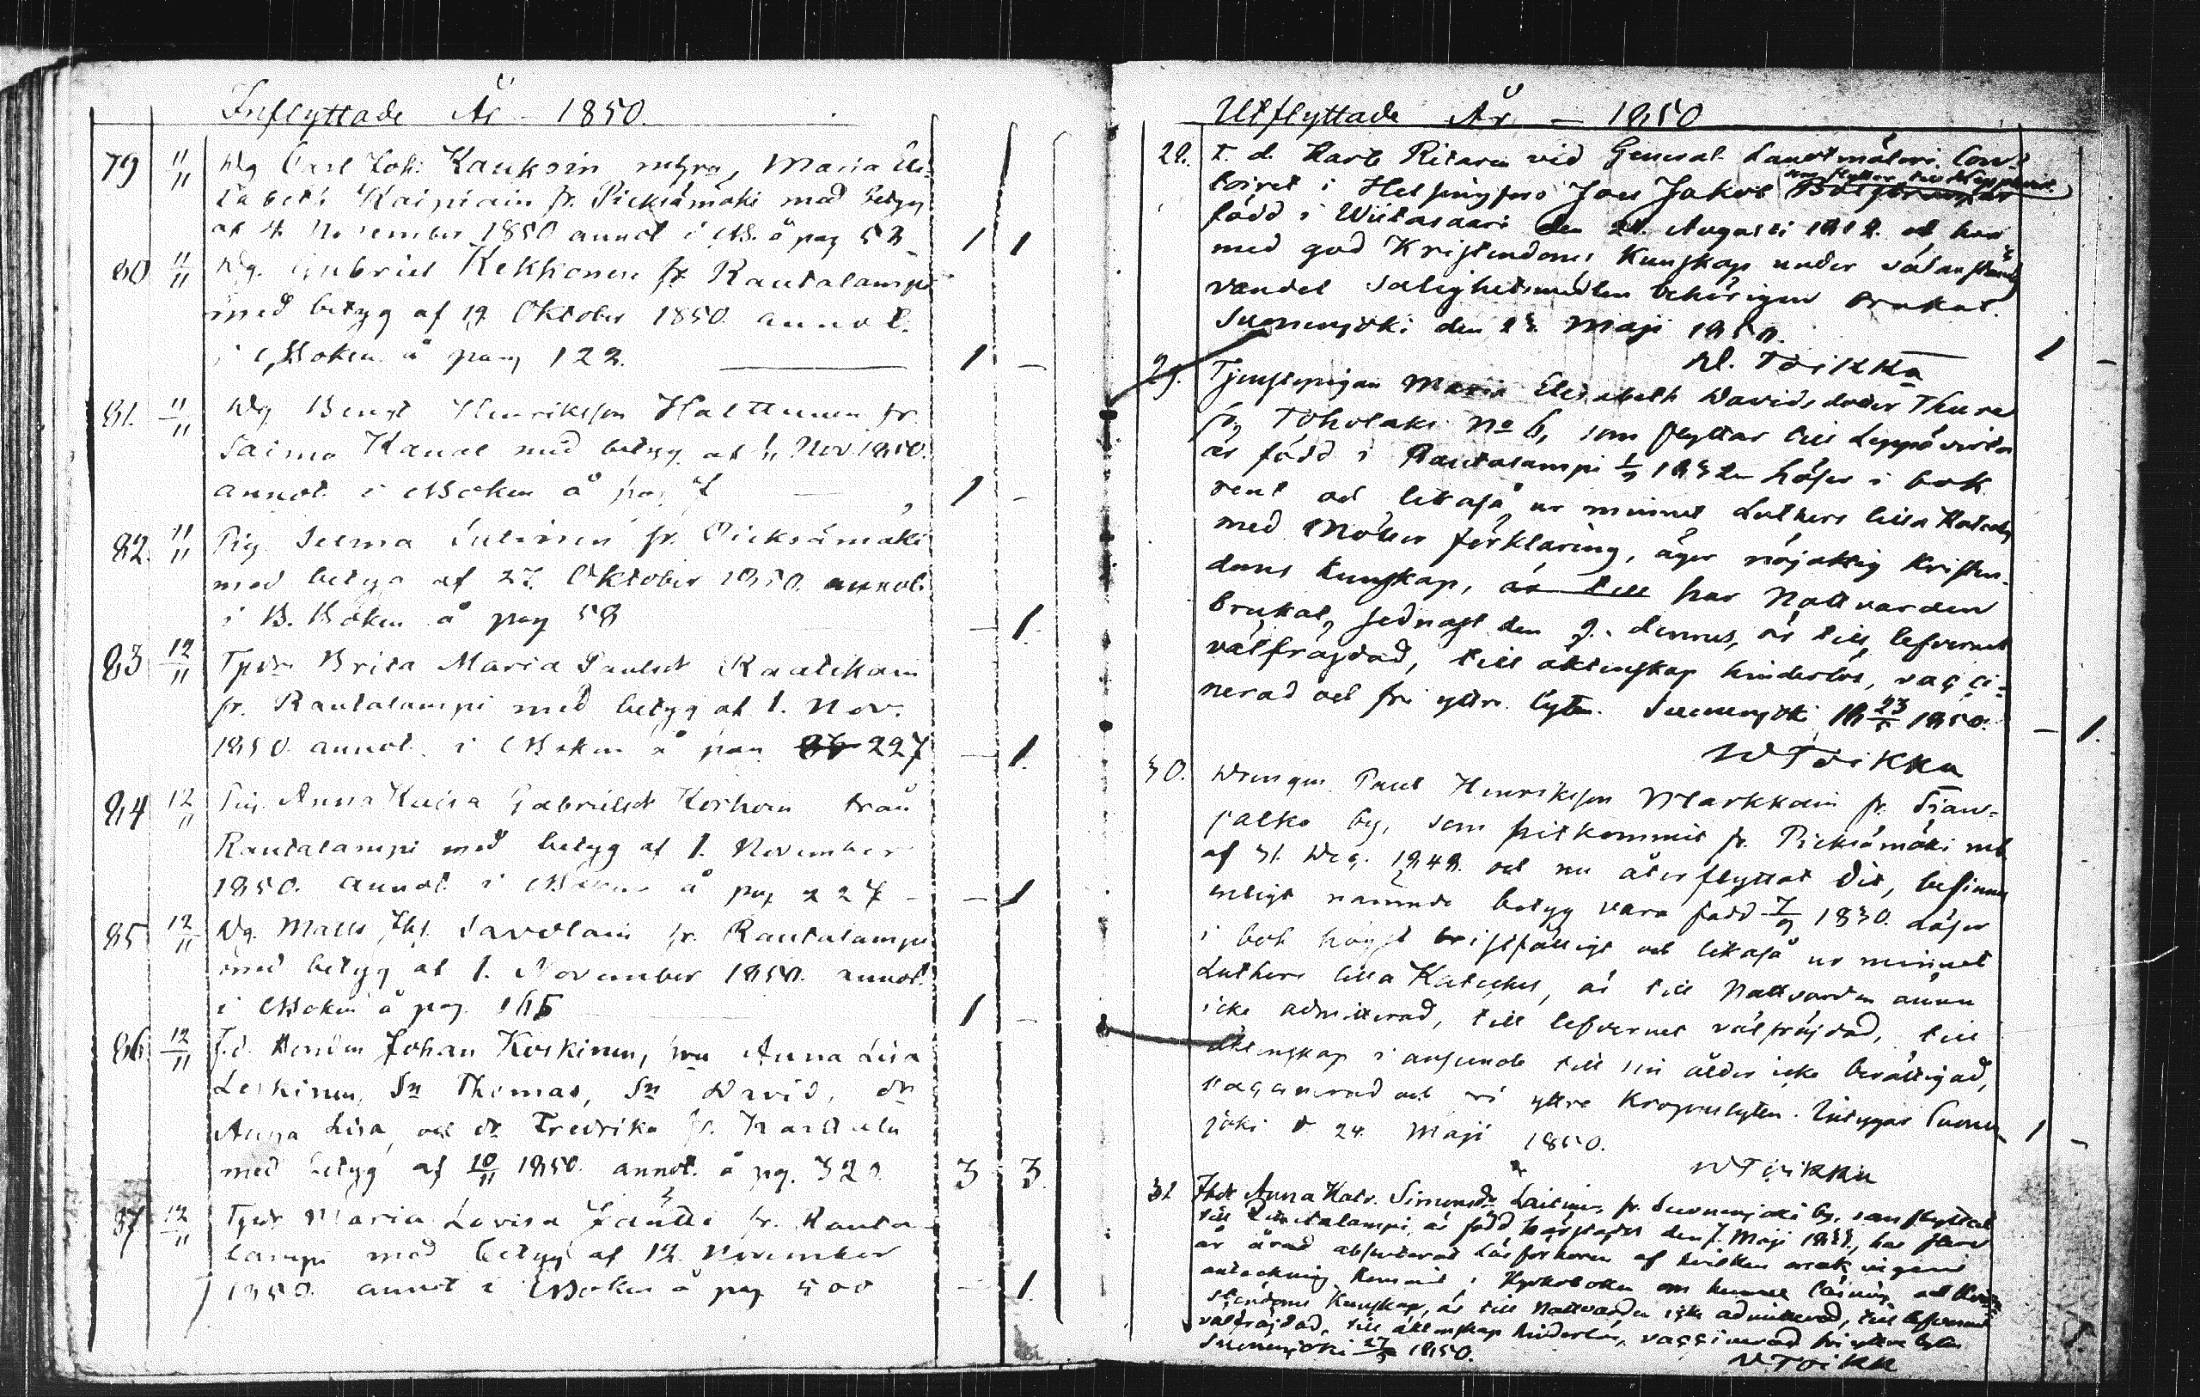 Inflyttade År - 1850.
79 11/11 Dg Carl Joh: Kauksin m hfru, Maria Eli-
sabeth Kaipiain fr. Pieksämäki med betyg
af 4 November 1850 annot i B. å pag 53 1 1
80 11/11 Dg. Gabriel Kekkonen fr Rautalampi
med betyg af 12 Oktober 1850. annot.
i Boken å pag 122. 1 -
81. 11/11 Dg Bengt Henriksson Halttunen fr.
Saima Kanal med betyg af Nov. 1850.
annot. i Boken å pag 1 -
82. 11/11 Pig Selma fr. Pieksämäki
med betyg af 27. Oktober 1850. annot.
i B. Boken å pag 58 - 1.
83 12/11 Brita Maria Paulsdr Raatikain
fr. Rautalampi med betyg af 1. Nov.
1850. annot. i Boken å pag 227 - 1.
84 12/11 Pig. Anna Kaisa Gabrielsdr Korhoin från
Rautalampi med betyg af 1. November
1850. annot. i Boken å pag 227 - - 1
85 12/11 Dg. Matts Savolain fr. Rautalampi
med betyg af 1. November 1850. annot.
i Boken å pag. 1 -
86 12/11 Johan Koskinen, hru Anna Lisa
Leskinen, Sn Thomas, Sn David, dr
Anna Lisa, och dr Fredrika fr.
med betyg af 10/11 1850. annot. å pg. 3 3.
87 12/11 Maria Lovisa Jäntti fr. Rauta-
lampi med betyg af 12. November
1850. annot i Boken å pag 500 - 1.
Utflyttade År - 1850
28. t. d. Kart Ritaren vid General Landtmäteri Con-
toiret i Helsingfors Joes Jakob
som flyttar till
född i Wiitasaari den 21. Augusti 1812. och har
med god Kristendoms Kunskap under
vandel salighetsmedlen behörigen brukat.
Suonenjoki den 23. Maji 1850.
W. Toikka 1 -
29. Tjenstepigan Maria Elisabeth Davidsdotter Thure
fr. Toholaks No 6, som flyttar till Leppävirta
är född i Rautalampi 1832. Läser i bok
rent och likaså ur minnet Luthers lilla Kateches
med Möllers förklaring, äger nöjaktig Kristen-
doms kunskap, är till har Nattvarden
brukat, sednast den 9. dennes, är till lefvernet
välfräjdad, till äktenskap hinderlös, vacci-
nerad och fri yttre lyten. Suonenjoki 23/5 1850. - 1.
W Toikka
30. Drengen Paul Henriksson Markkain fr.
by, som hitkommit fr. Pieksämäki med
af 31. Dec. 1848. och nu återflyttat dit, befinnes
enligt nämnde betyg vara född 7/9 1830. Läser
i bok högst bristfälligt och likaså ur minnet
Luthers lilla Kateches, är till Nattvarden ännu
icke admitterad, till lefvernet välfräjdad, till
äktenskap i anseende till sin ålder icke berättigad,
vaccinerad och fri yttre kroppslyten. Intygar Suonen-
joki d 24. Maji 1850. 1 -
W Toikka
31 Anna Katr. Simonsdr Laitinen, fr. Suonenjoki by, som flyttat
till Rautalampi, är född härstädes den 7. Maji har
af hvilken orsak ingen
anteckning kommit i Kyrkoboken om hennes läsning och Kri-
stendoms Kunskap, är till Nattvarden icke admitterad, till lefvernet
välfräjdad, till äktenskap hinderlös, vaccinerad fri yttre lyten
Suonenjoki 27/5 1850.
W Toikk